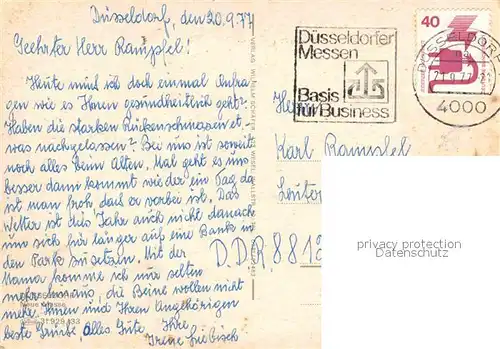 Düsseldorf, den 20.9.77
Geehrter Herr Rampfel!
Heute muß ich doch einmal Anfra-
gen wie es Ihnen gesundheitlich geht?
Haben die starken Rückenschmerzen et-
was nachgelassen? Bei uns ist soweit
noch alles beim Alten. Mal geht es uns
besser dann kommt wieder ein Tag da
ist man froh, daß er vorbei ist. Das
Wetter ist dies Jahr auch nicht danach
um sich für länger auf eine Bank in
den Park zu setzen. Mit der
Mama komme ich nur selten
mehr raus, die Beine wollen nicht
mehr. Ihnen und Ihren Angehörigen
beste Grüße, alles Gute, Ihre
Irene Liebisch
Düsseldorfer
Messen
Basis
für Business
40
DÜSSELDORF
21.9.77
4000
Herrn
Karl Rampfel
DDR 881
privacy protection
Datenschutz